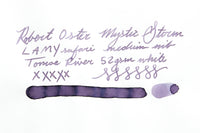 Robert Oster Mystic Storm
LAMY safari medium nib
Tomoe River 52gsm white
XXXXX